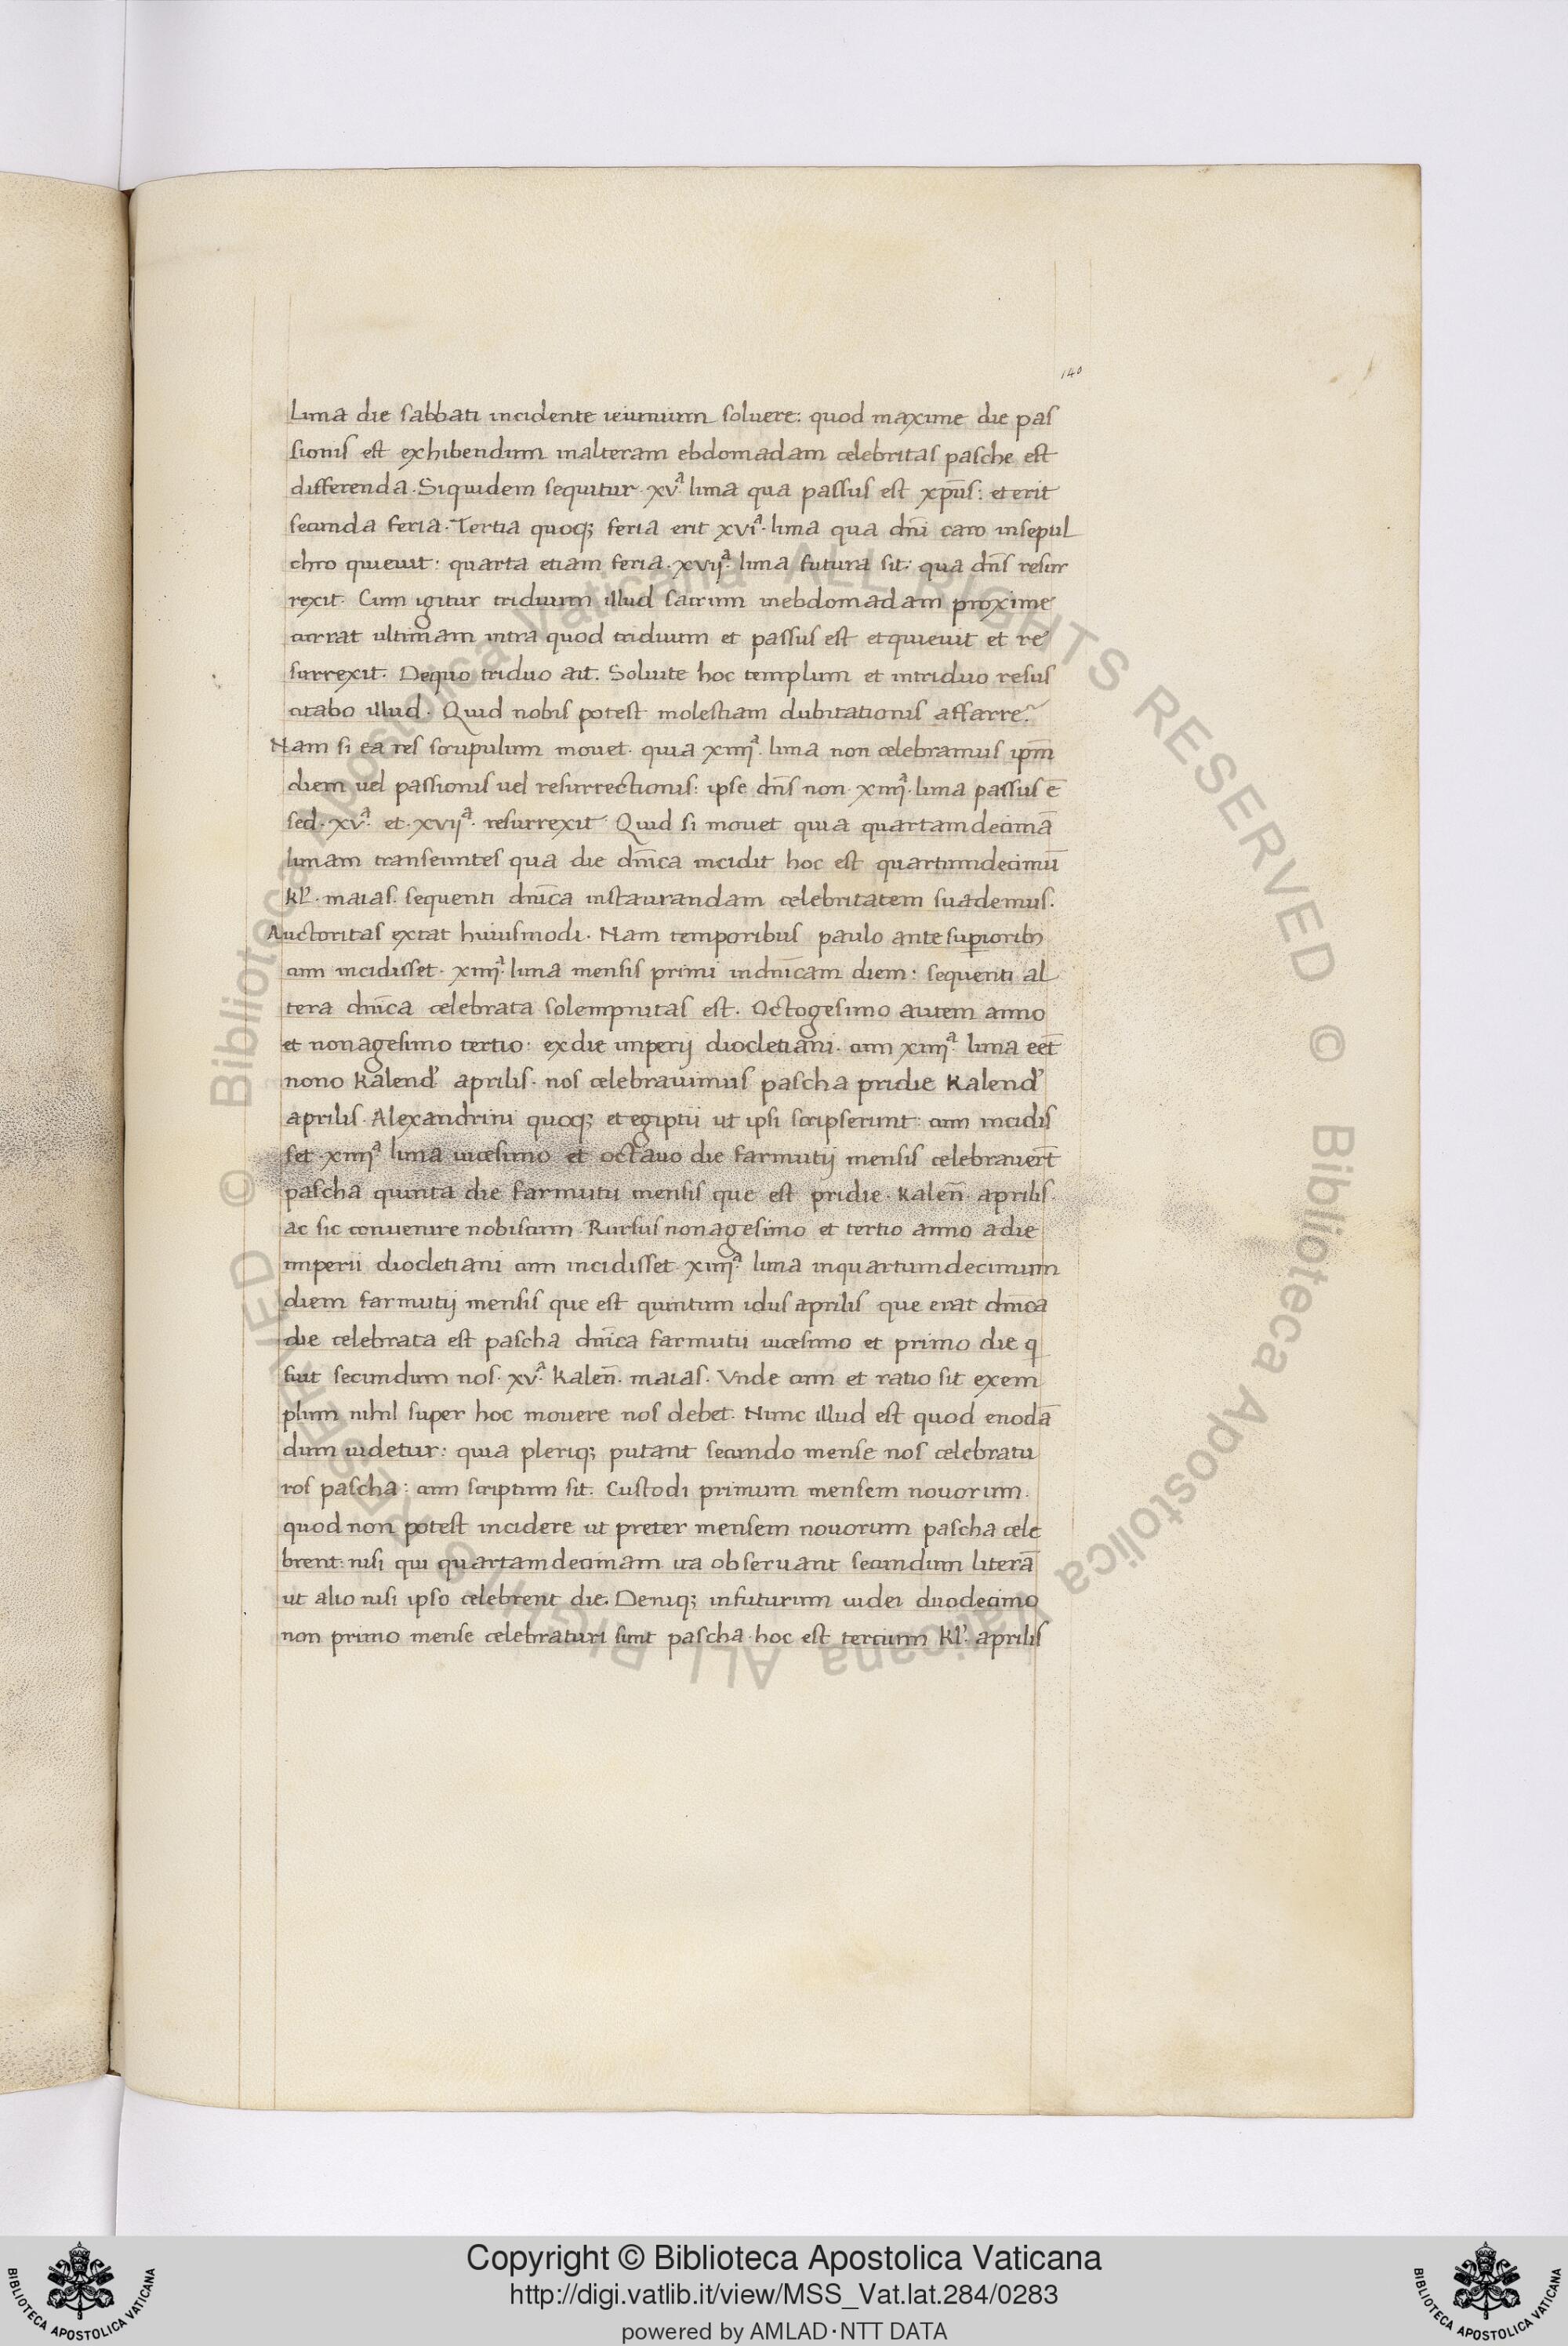 140
Luna die sabbati incidente ieiunium soluere: quod maxime die pas
sionis est exhibendum inalteram ebdomadam celebritas pasche est
differenda. Siquidem sequitur. xv.ª luna qua passus est xp̄us: et erit
secunda feria. Tertia quoq; feria erit xvi.ª luna qua dn̄i caro insepul
chro quieuit: quarta etiam feria. xvij.ª luna futura sit: qua dn̄s resur
rexit. Cum igitur triduum illud sacrum inebdomadam proxime
currat ultimam intra quod triduum et passus est et quieuit et re
surrexit. Dequo triduo ait. Soluite hoc templum et intriduo resus
citabo illud. Quid nobis potest molestiam dubitationis affarre?
Nam si ea res scrupulum mouet. quia xiiij.ª luna non celebramus ipm̄
diem uel passionis uel resurrectionis: ipse dn̄s non. xiiij.ª luna passus ē
sed. xv.ª et. xvij.ª resurrexit. Quid si mouet quia quartamdecimā
lunam transeuntes qua die dn̄ica incidit hoc est quartumdecimū
kl'. maias. sequenti dn̄ica instaurandam celebritatem suademus.
Auctoritas extat huiusmodi. Nam temporibus paulo ante superiorib;
cum incidisset. xiiij.ª luna mensis primi indn̄icam diem: sequenti al
tera dn̄ica celebrata solempnitas est. Octogesimo autem anno
et nonagesimo tertio: exdie imperij diocletiani. cum xiiij.ª luna eēt
nono Kalend' aprilis. nos celebrauimus pascha pridie Kalend'
aprilis. Alexandrini quoq; et egiptii ut ipsi scripserunt: cum incidis
set. xiiij.ª luna uicesimo et octauo die farmutij mensis celebrauert̄
pascha quinta die farmutii mensis que est pridie. Kalen̄. aprilis.
ac sic conuenire nobiscum. Rursus nonagesimo et tertio anno a die
imperii diocletiani cum incidisset. xiiij.ª luna inquartumdecimum
diem farmutij mensis que est quintum idus aprilis que erat dn̄ica
die celebrata est pascha dn̄ica farmutii uicesimo et primo die q
fuit secundum nos. xv.ª Kalen̄. maias. Vnde cum et ratio sit exem
plum nihil super hoc mouere nos debet. Nunc illud est quod enodā
dum uidetur: quia pleriq; putant secundo mense nos celebratu
ros pascha: cum scriptum sit. Custodi primum mensem nouorum.
quod non potest incidere ut preter mensem nouorum pascha cele
brent: nisi qui quartamdecimam ita obseruant secundum literā
ut alio nisi ipso celebrent die. Deniq; infuturum iudei duodecimo
non primo mense celebraturi sunt pascha. hoc est tercium Kl'. aprilis
© Biblioteca Apostolica Vaticana ALL RIGHTS RESERVED © Biblioteca Apostolica Vaticana ALL RIGHTS RESERVED
Copyright © Biblioteca Apostolica Vaticana
http://digi.vatlib.it/view/MSS_Vat.lat.284/0283
powered by AMLAD·NTT DATA
BIBLIOTECA APOSTOLICA VATICANA
BIBLIOTECA APOSTOLICA VATICANA